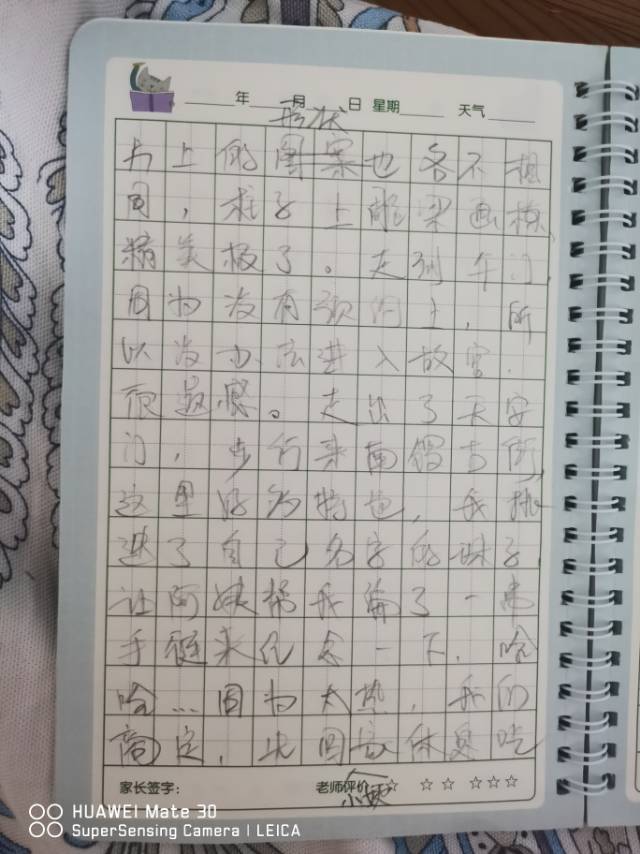 年 月 日 星期 天气
形状
与上的图案也各不相
同，柱子上雕梁画栋
精美极了。走到午门，
因为没有预约上，所
以没办法进入故宫.
很遗憾。走出了天安
门，步行来南锣古街，
这里好为拖也，我挑
选了自己名字的珠子，
让阿姨帮我编了一串
手链来纪念一下.哈
哈...因为太热，我们
商定，先回家休息吃
家长签字： 老师评价 ☆ ☆☆ ☆☆☆
HUAWEI Mate 30
SuperSensing Camera | LEICA